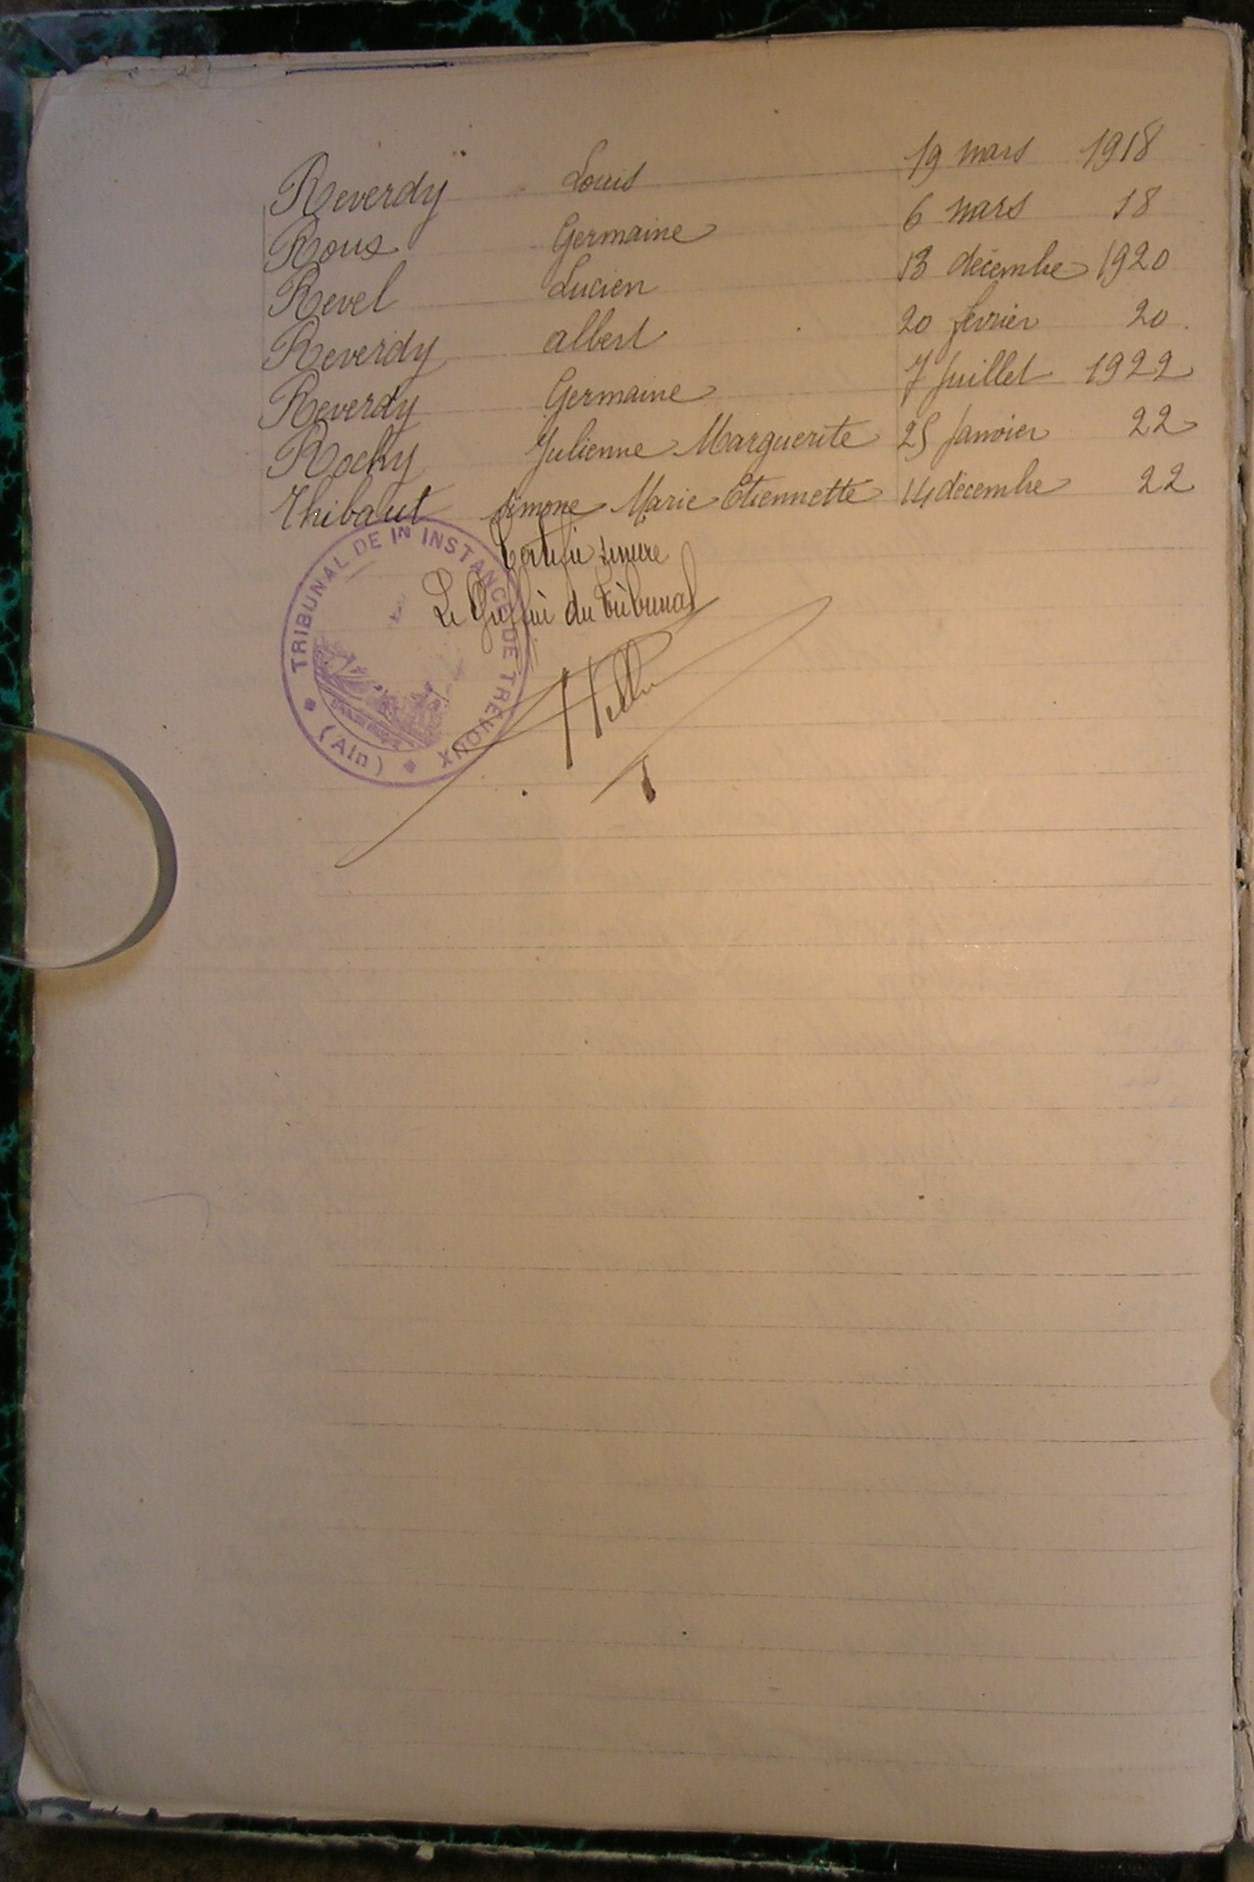 Reverdy Louis 19 mars 1918
Rous Germaine 6 mars 18
Revel Lucien 13 décembre 1920
Reverdy albert 20 février 20
Reverdy Germaine 7 Juillet 1922
Rochy Julienne Marguerite 25 Janvier 22
Thibaut Simone Marie Etiennette 14 décembre 22
Certifié sincère
Le Greffier du Tribunal
TRIBUNAL DE IN INSTANCE DE TRÉVOUX
(Ain)